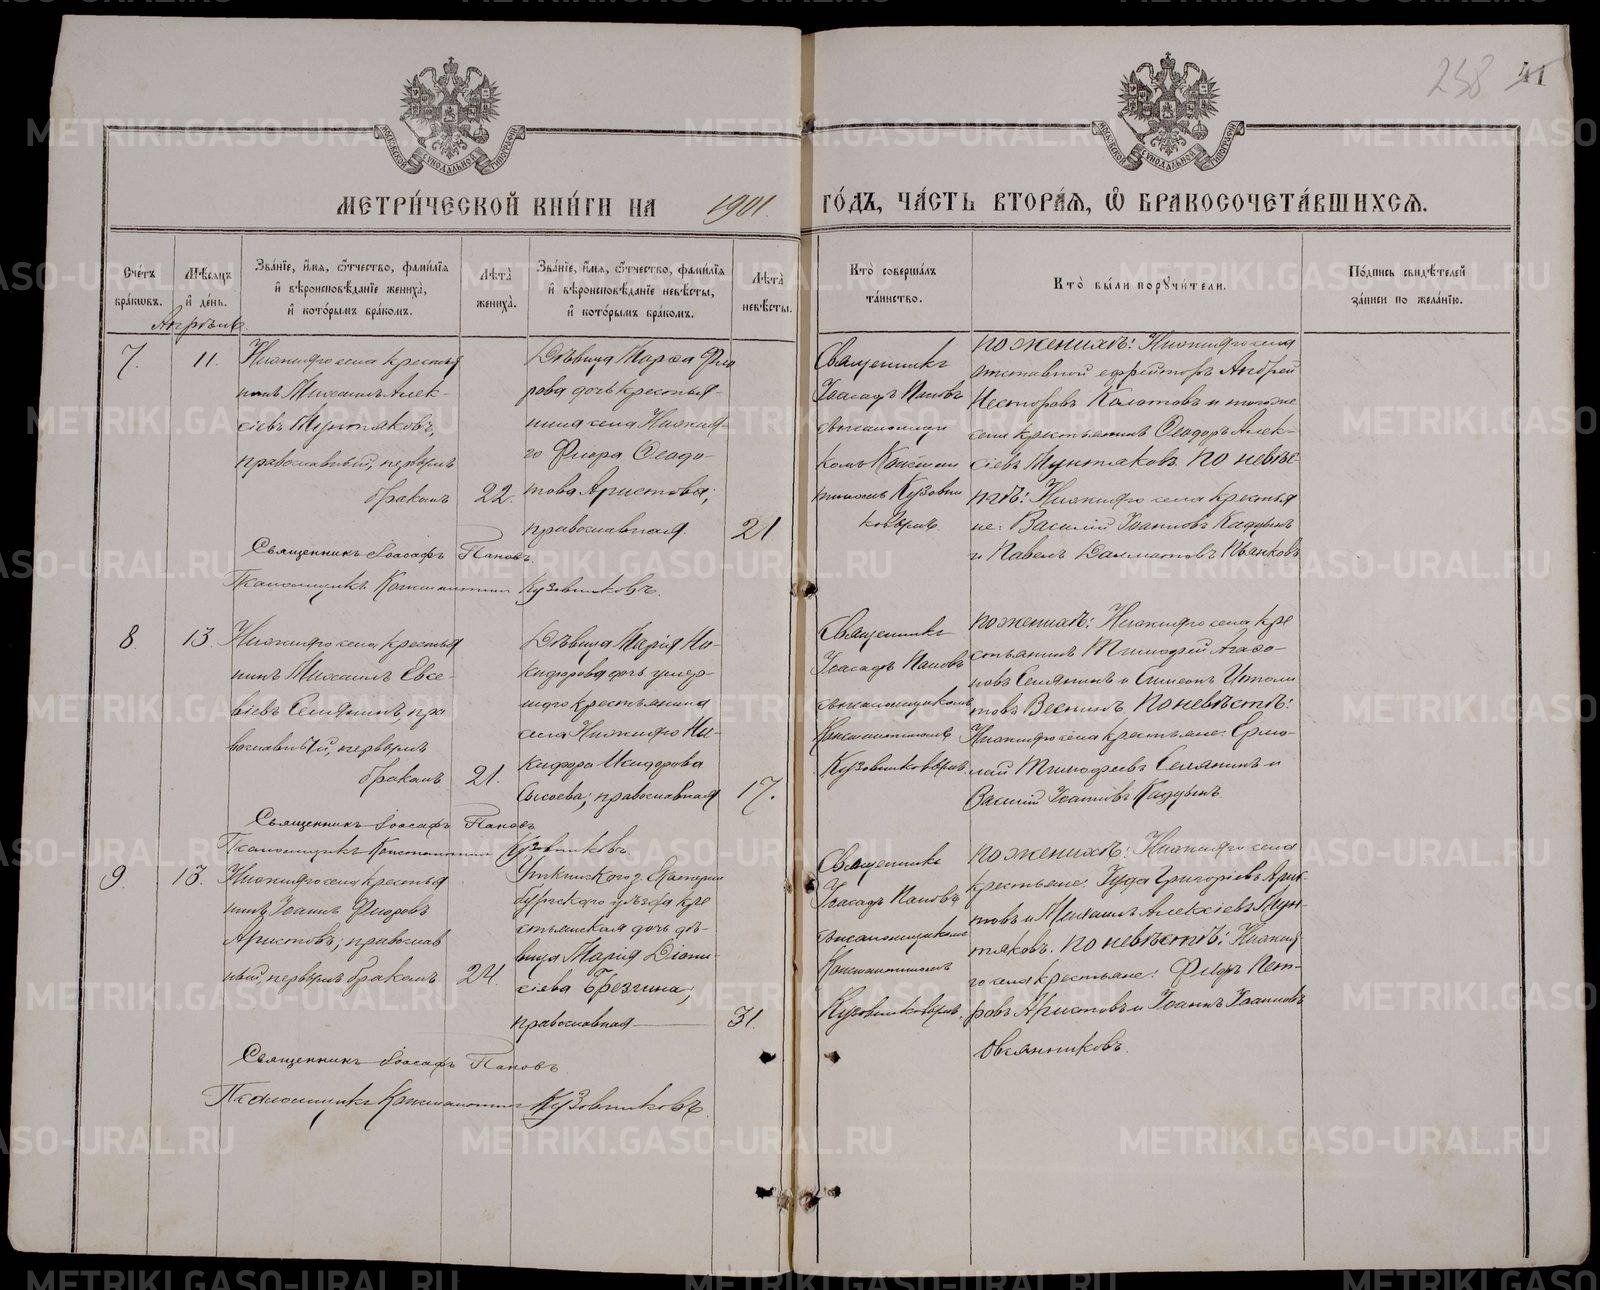 258 41
МЕТРИ́ЧЕСКОЙ КНИ́ГИ НА 1901. ГО́ДЪ, ЧА́СТЬ ВТОРА́Я, Ѽ БРАКОСОЧЕТА́ВШИХСЯ.
Сче́тъ бра́ковъ.
Мѣ́сяцъ и де́нь.
Зва́нїе, и́мя, ѻ҆́тчество, фами́лїя и҆ вѣроисповѣ́данїе жениха̀, и҆ кото́рымъ бра́комъ.
Лѣ́та жениха̀.
Зва́нїе, и́мя, ѻ҆́тчество, фами́лїя и҆ вѣроисповѣ́данїе невѣ́сты, и҆ кото́рымъ бра́комъ.
Лѣ́та невѣ́сты.
Кто̀ соверша́лъ та́инство.
Кто̀ бы́ли порꙋчи́тели.
По́дпись свидѣ́телей за́писи по жела́нїю.
Апрѣль
7.
11.
Нижняго села крестья
нинъ Михаилъ Алек-
сіевъ Мунтяковъ,
православный, первымъ
бракомъ
22.
Дѣвица Марѳа Фло
рова дочь крестья-
нина села Нижня-
го Флора Ѳеодо-
това Аристова;
православная
21
Священникъ
Іоасафъ Пановъ
съ псаломщи
комъ Констан
тиномъ Кузовни
ковымъ
По женихѣ: Нижняго села
отставной ефрейторъ Андрей
Несторовъ Колотовъ и того же
села крестьянинъ Ѳеодоръ Алек-
сіевъ Мунтяковъ. По невѣс
тѣ: Нижняго села крестья
не: Василій Іоанновъ Кадцынъ
и Павелъ Далматовъ Пьянковъ
Священникъ Іоасафъ Пановъ.
Псаломщикъ Константинъ Кузовниковъ.
8
13.
Нижняго села крестья
нинъ Михаилъ Евсе-
віевъ Селянинъ, пра
вославный, первымъ
бракомъ
21.
Дѣвица Марія Ни-
кифорова дочь умер-
шаго крестьянина
села Нижняго Ни-
кифора Исидорова
Сысоева; православная
17.
Священникъ
Іоасафъ Пановъ
съ псаломщикомъ
Константиномъ
Кузовниковымъ
По женихѣ: Нижняго села кре
стьянинъ Тимофей Агафо-
новъ Селянинъ и Симеонъ
Веснинъ По невѣстѣ:
Нижняго села крестьяне: Ермо-
лай Тимофеевъ Селянинъ и
Василій Іоанновъ Кадцынъ.
Священникъ Іоасафъ Пановъ
Псаломщикъ Константинъ Кузовниковъ.
9.
13.
Нижняго села крестья
нинъ Іоаннъ Флоровъ
Аристовъ; православ
ный, первымъ бракомъ
24.
Уткинскаго з. Екатерин
бургскаго уѣзда кре
стьянская дочь дѣ-
вица Марія Діони-
сіева Брезгина;
православная
31.
Священникъ
Іоасафъ Пановъ
съ псаломщикомъ
Константиномъ
Кузовниковымъ.
По женихѣ: Нижняго села
крестьяне: Григоріевъ Арис-
товъ и Михаилъ Алексіевъ Мун-
тяковъ. По невѣстѣ: Нижня
го села крестьяне: Флоръ Пет-
ровъ Аристовъ и Іоаннъ Іоанновъ
Овсянниковъ.
Священникъ Іоасафъ Пановъ.
Псаломщикъ Константинъ Кузовниковъ.
METRIKI.GASO-URAL.RU